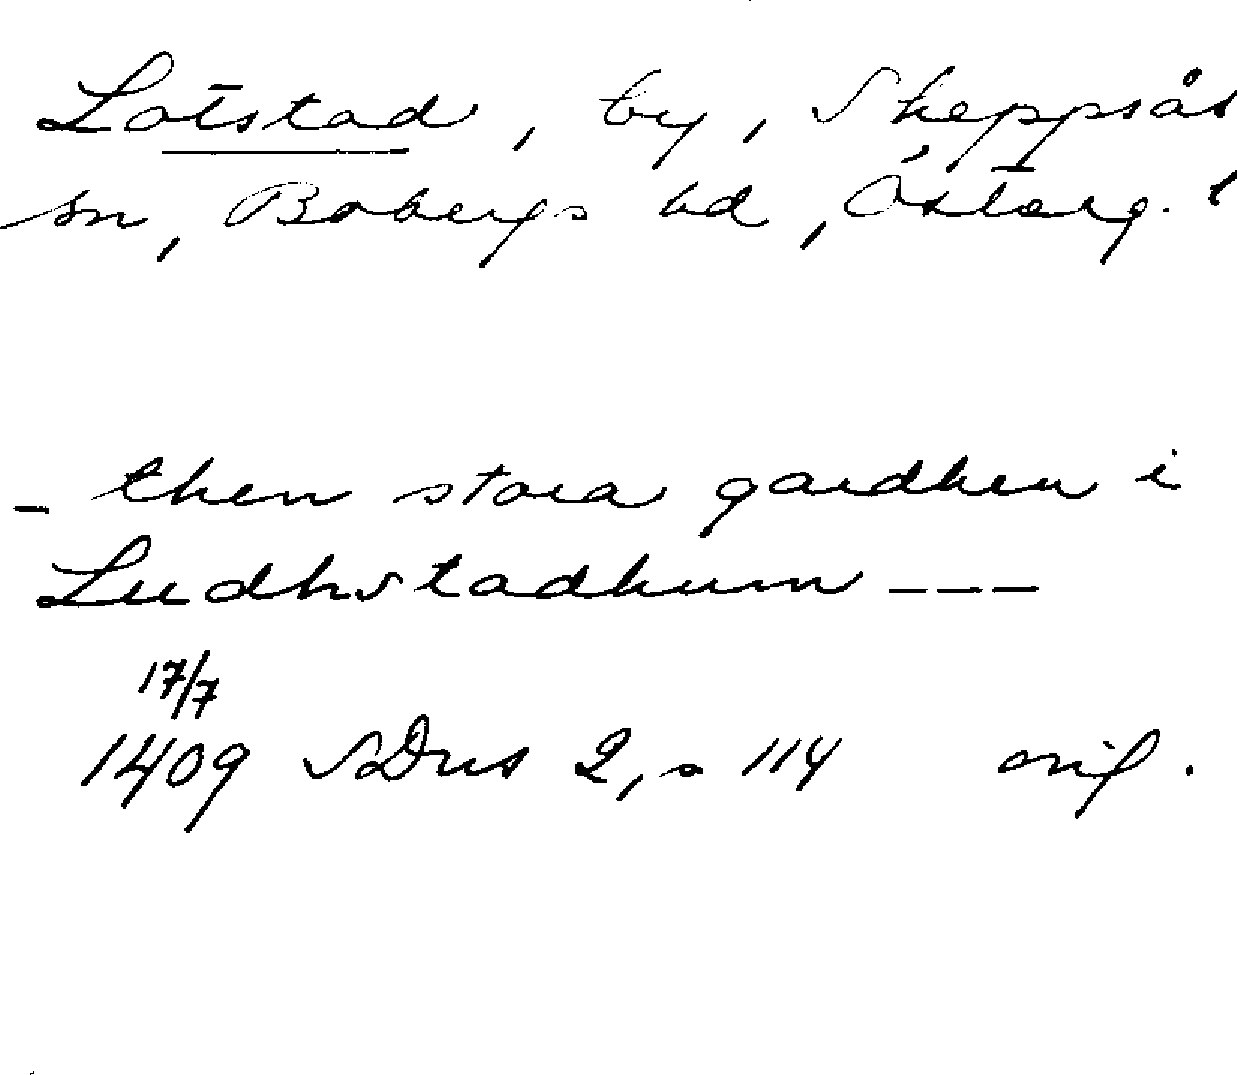 Lotstad, by, Skeppsås
sn, Bobergs hd, Österg. l
- then stora gardhen i
Ludhstadhum ---
17/7
1409 SDns 2, s 114 orig.